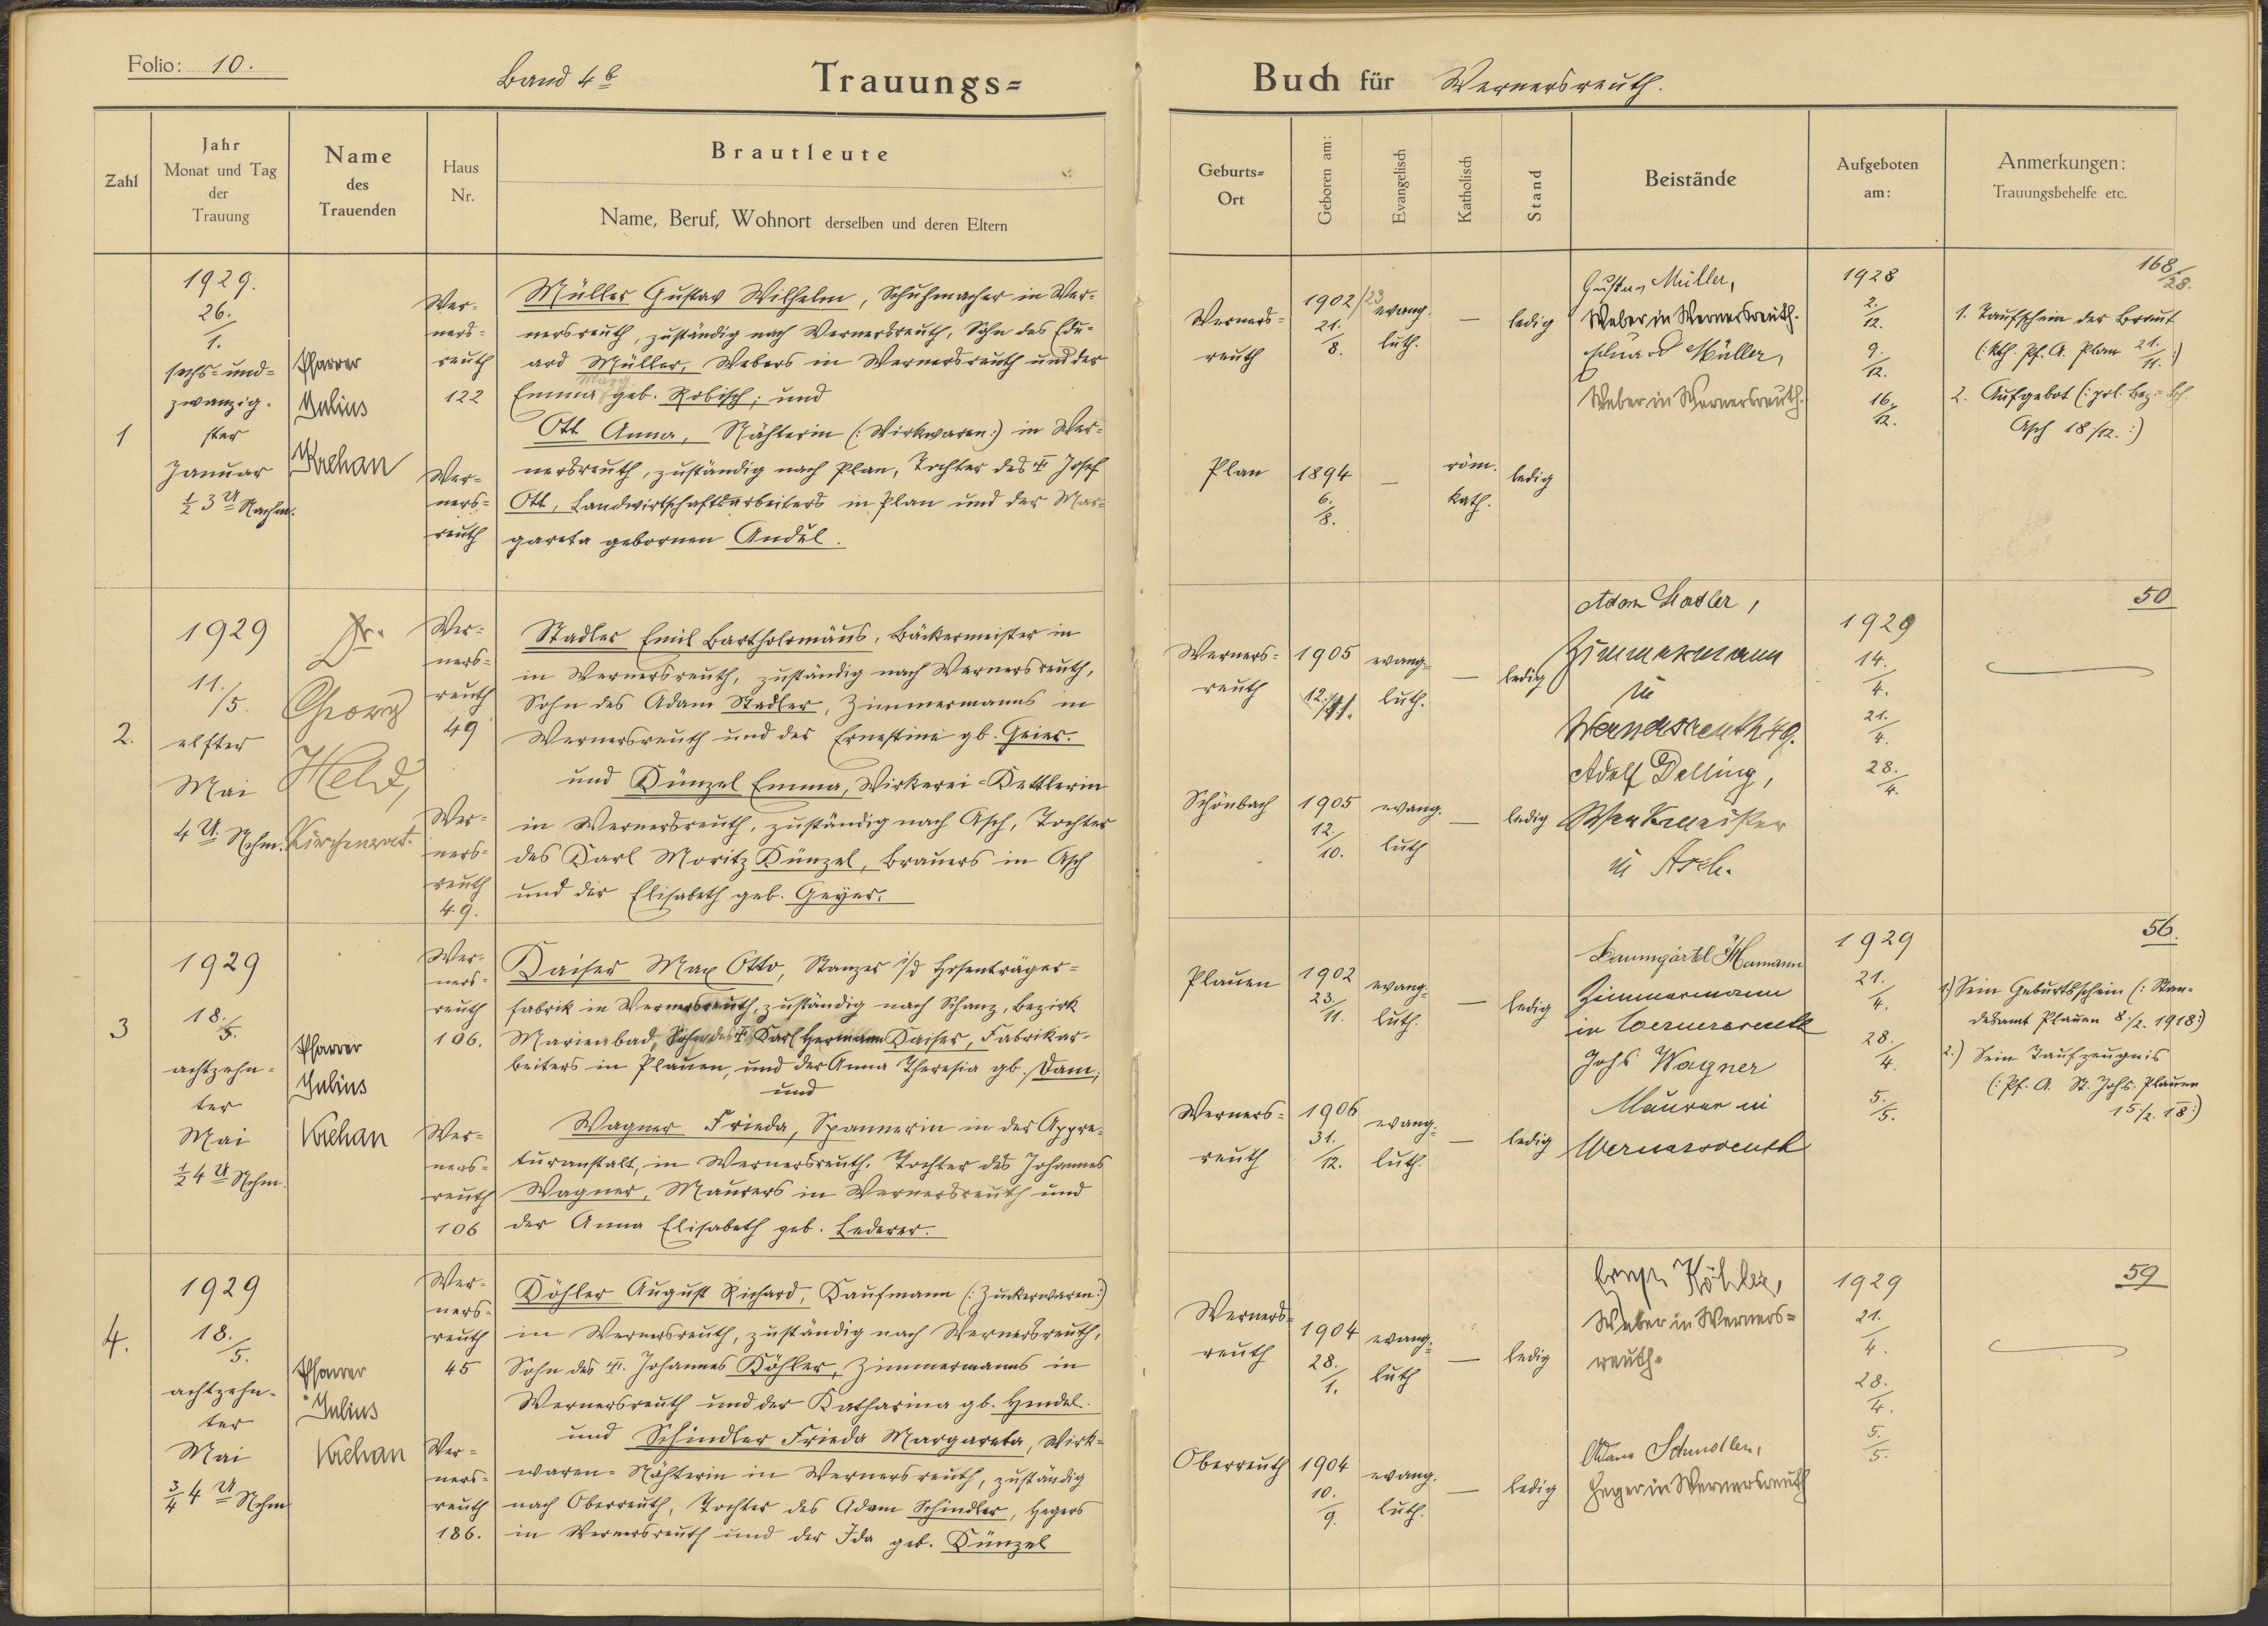 Folio: 10.
Band 4b
Trauungs=
Buch für Wernersreuth.
Zahl
Jahr
Monat und Tag
der
Trauung
Name
des
Trauenden
Haus
Nr.
Brautleute
Name, Beruf, Wohnort derselben und deren Eltern
Geburts=
Ort
Geboren am:
Evangelisch
Katholisch
Stand
Beistände
Aufgeboten
am:
Anmerkungen:
Trauungsbehelfe etc.
1
1929.
26./1.
sechs=und=
zwanzig-
ster
Januar
½ 3 U Nachm.
Pfarrer
Julius
Krehan
Wer-
ners-
reuth
122
Müller Gustav Wilhelm, Schuhmacher in Wer-
nersreuth, zuständig nach Wernersreuth, Sohn des Edu-
ard Müller, Webers in Wernersreuth und der
Marg.
Emma geb. Robisch; und
Ott Anna, Nähterin (:Wirkwaren:) in Wer-
nersreuth, zuständig nach Plan, Tochter des † Josef
Ott, Landwirtschaftsarbeiters in Plan und der Mar-
gareta gebornen Andel.
Wer-
ners-
reuth
Werners-
reuth
1902/23
21./8.
evang.
luth.
—
ledig
Gustav Müller,
Weber in Wernersreuth.
Eduard Müller,
Weber in Wernersreuth.
1928
2./12.
9./12.
16./12.
168/28.
1. Taufschein der Braut
(:kth. Pf. A. Plan 21./11.:)
2. Aufgebot (:pol. Bez.=
Asch 18/12.:)
Plan
1894
6./8.
—
röm.
kath.
ledig
2.
1929
11./5.
elfter
Mai
4 U. Nchm.
Dr.
Georg
Held,
Kirchenrat.
Wer-
ners-
reuth
49
Stadler Emil Bartholomäus, Bäckermeister in
in Wernersreuth, zuständig nach Wernersreuth,
Sohn des Adam Stadler, Zimmermanns in
Wernersreuth und der Ernestine gb. Geier.
und Künzel Emma, Wirkerei-Kettlerin
in Wernersreuth, zuständig nach Asch, Tochter
des Karl Moritz Künzel, Brauers in Asch
und der Elisabeth geb. Geyer.
Wer-
ners-
reuth
49.
Werners-
reuth
1905
12./11.
evang-
luth.
—
ledig
Adam Stadler,
Zimmermann
in
Wernersreuth 49.
Adolf Delling,
Werkmeister
in Asch.
1929
14./4.
21./4.
28./4.
50
Schönbach
1905
12./10.
evang.
luth
—
ledig
3
1929
18./5.
achtzehn-
ter
Mai
½ 4 U Nchm.
Pfarrer
Julius
Krehan
Wer-
ners-
reuth
106.
Kaiser Max Otto, Stanzer i/d Hosenträger-
fabrik in Wernersreuth, zuständig nach Schanz, Bezirk
Marienbad, Sohn des † Karl Hermann Kaiser, Fabrikar-
beiters in Plauen, und der Anna Theresia gb. Dam;
und
Wagner Frieda, Spannerin in der Appre-
turanstalt, in Wernersreuth, Tochter des Johannes
Wagner, Maurers in Wernersreuth und
der Anna Elisabeth geb. Lederer.
Wer-
ners-
reuth
106
Plauen
1902
23./11.
evang-
luth.
—
ledig
Baumgärtel Hermann
Zimmermann
in Wernersreuth
Johs Wagner
Maurer in
Wernersreuth
1929
21./4.
28./4.
5./5.
56.
1.) Sein Geburtsschein (:Stan-
desamt Plauen 8./2. 1918:)
2.) Sein Taufzeugnis
(:Pf. A. St. Johs. Plauen
15./2. 18:)
Werners-
reuth
1906
31./12.
evang-
luth.
—
ledig
4.
1929
18./5.
achtzehn-
ter
Mai
¾ 4 U Nchm
Pfarrer
Julius
Krehan
Wer-
ners-
reuth
45
Köhler August Richard, Kaufmann (:Zuckerwaren:)
in Wernersreuth, zuständig nach Wernersreuth,
Sohn des †. Johannes Köhler, Zimmermanns in
Wernersreuth und der Katharina gb. Hendel.
und Schindler Frieda Margareta, Wirk-
waren-Nähterin in Wernersreuth, zuständig
nach Oberreuth, Tochter des Adam Schindler, Hegers
in Wernersreuth und der Ida geb. Künzel
Wer-
ners-
reuth
186.
Werners-
reuth
1904
28./1.
evang-
luth
—
ledig
Ernst Köhler,
Weber in Werners-
reuth.
Adam Schindler,
Heger in Wernersreuth
1929
21./4.
28./4.
5./5.
59
Oberreuth
1904
10./9.
evang.
luth.
—
ledig